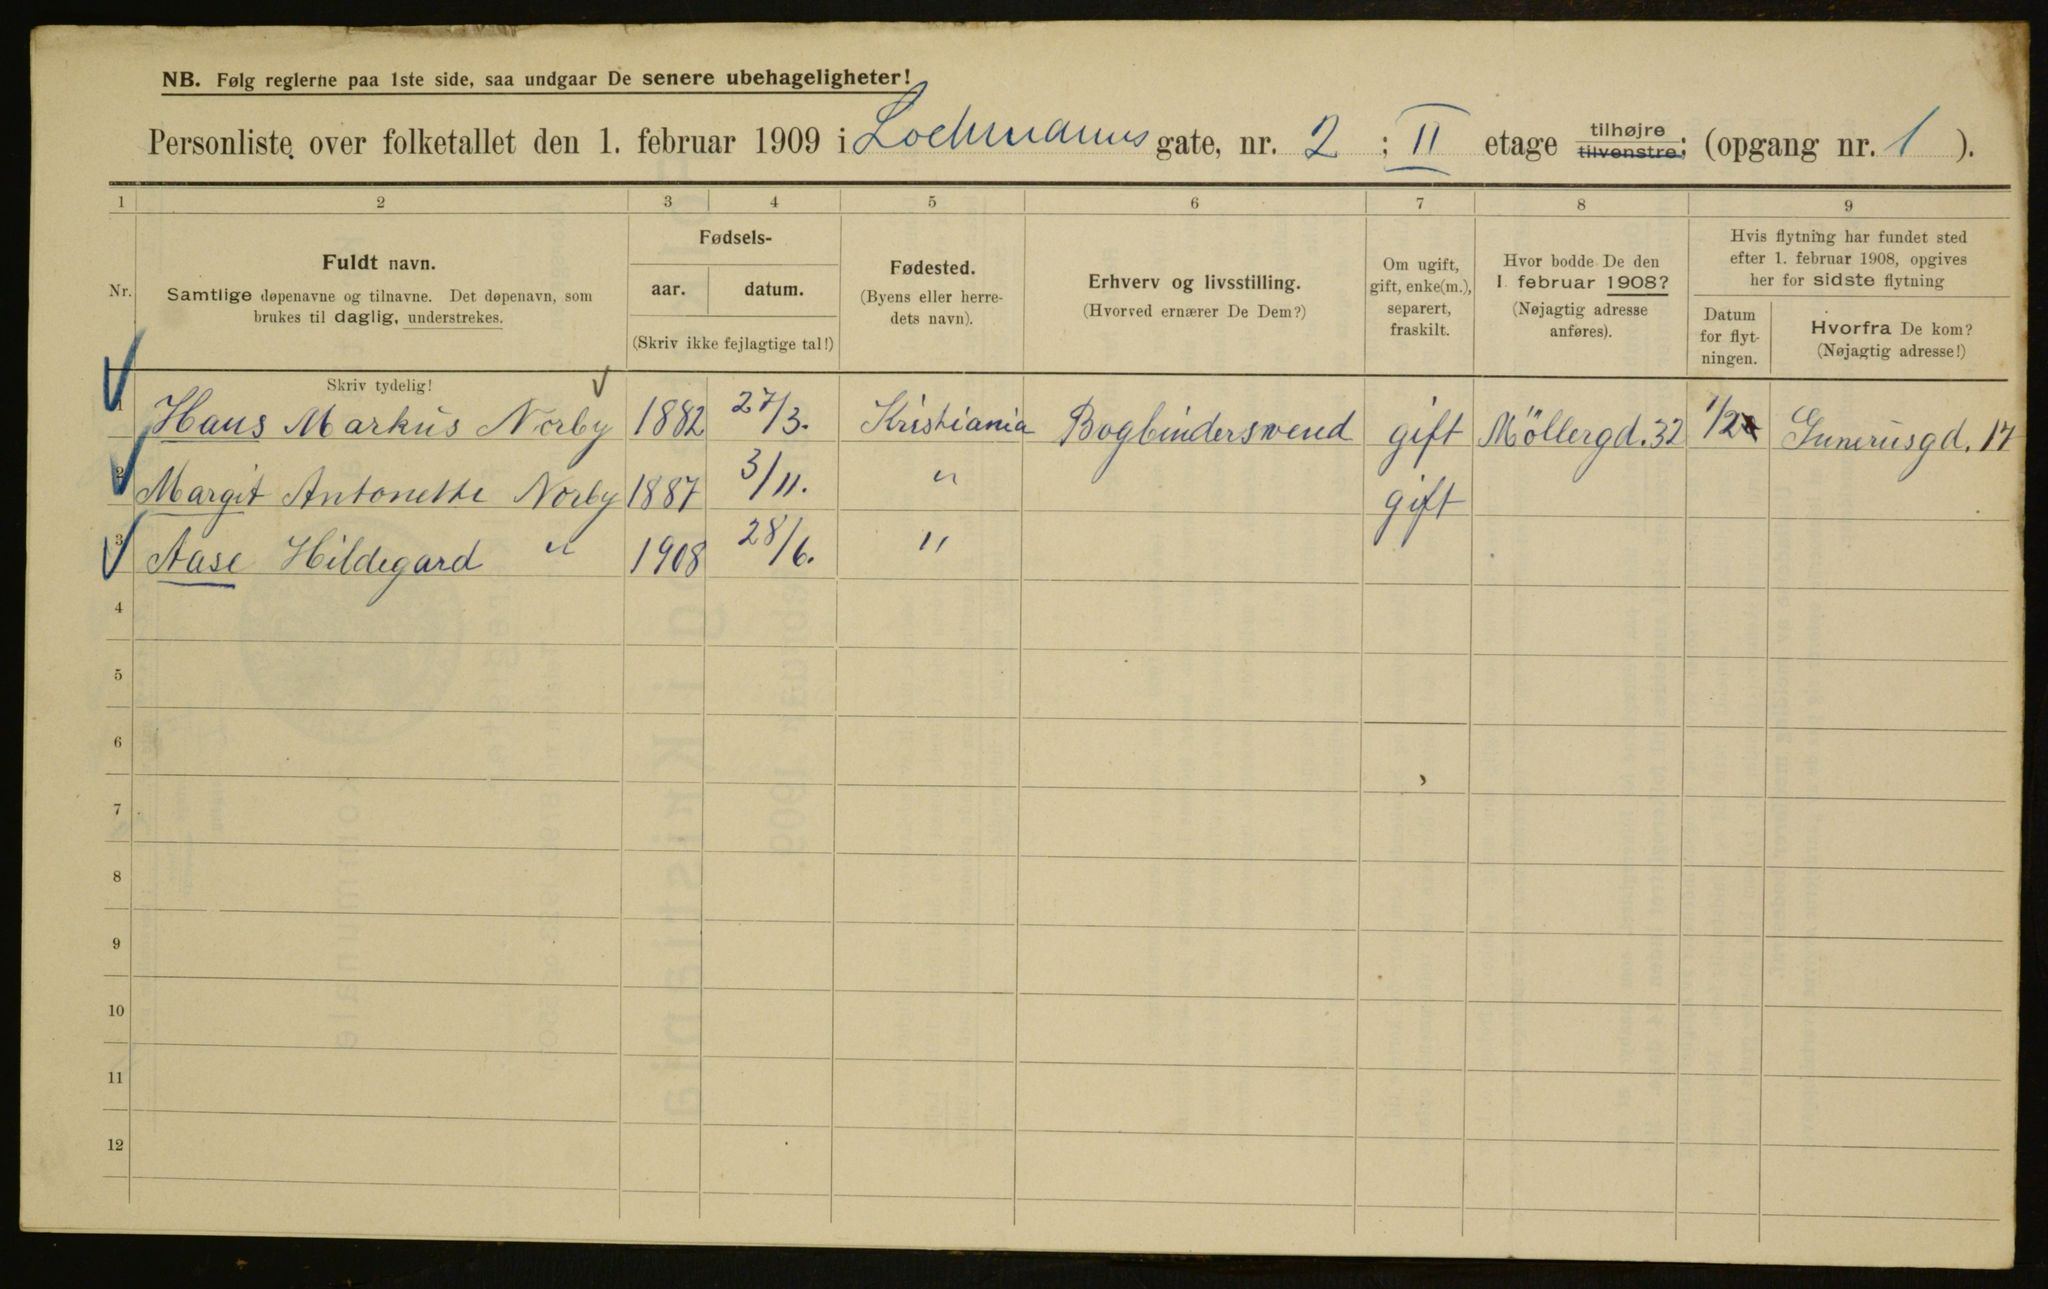 NB. Følg reglerne paa 1ste side, saa undgaar De senere ubehageligheter!
Personliste over folketallet den 1. februar 1909 i Lochmanns gate, nr. 2 ; II etage tilhøjre tilvenstre; (opgang nr. 1 ).
1 2 3 4 5 6 7 8 9
Nr.
Fuldt navn.
Samtlige døpenavne og tilnavne. Det døpenavn, som
brukes til daglig, understrekes.
Skriv tydelig!
Fødsels-
aar. datum.
(Skriv ikke fejlagtige tal!)
Fødested.
(Byens eller herre-
dets navn).
Erhverv og livsstilling.
(Hvorved ernærer De Dem?)
Om ugift,
gift, enke(m.),
separert,
fraskilt.
Hvor bodde De den
1. februar 1908?
(Nøjagtig adresse
anføres).
Hvis flytning har fundet sted
efter 1. februar 1908, opgives
her for sidste flytning
Datum
for flyt-
ningen.
Hvorfra De kom?
(Nøjagtig adresse!)
1 Hans Markus Norby 1882 27/3. Kristiania Bogbindersvend gift Möllergd. 32 1/2 Gunerusgd. 17
2 Margit Antonette Norby 1887 3/11. " gift
3 Aase Hildegard " 1908 28/6. "
4
5
6
7
8
9
10
11
12